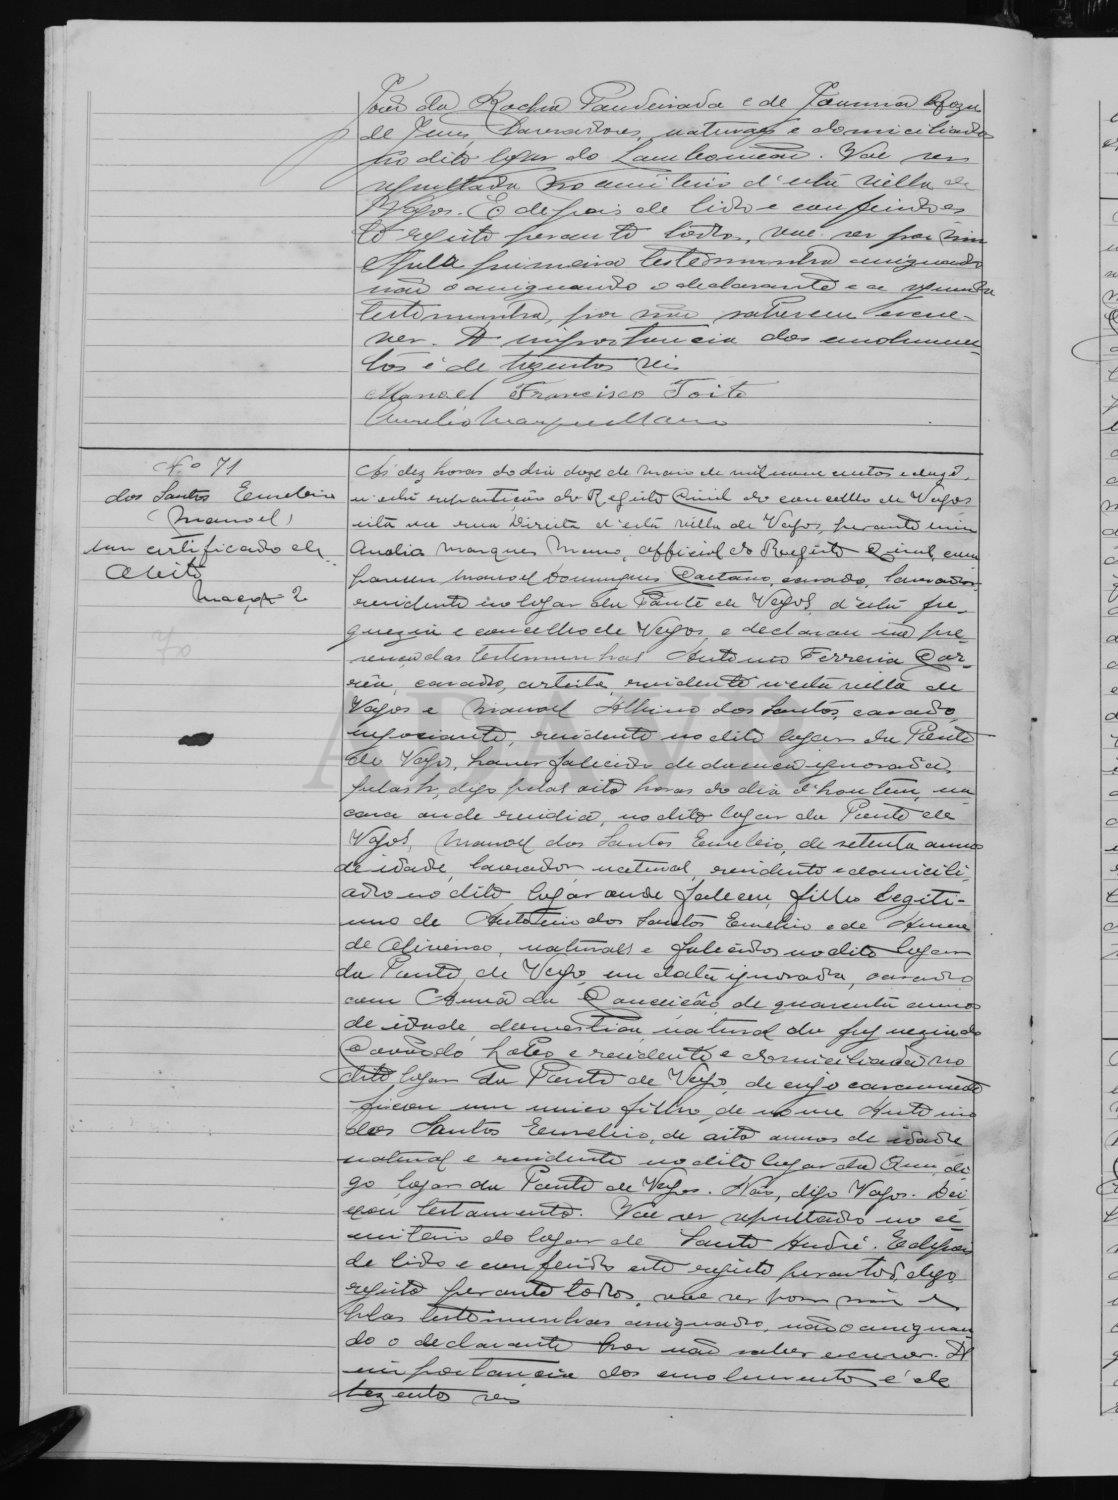 João da Rocha Pandeirada e de Joanna Roza
de Jesus, Lavradores, naturaes e domiciliados
no dito logar do Lombomeão. Vae ser
sepultada no cemiterio d'esta villa de
Vagos. E depois de lido e conferido es-
te registo perante todos, vae ser por mim
e pela primeira testemunha assignado
não o assignando o declarante e a segunda
testemunha, por não saberem escre-
ver. A importancia dos emolumen-
tos é de trezentos reis
Manoel Francisco Toito
Aurelio Marques Mano
Nº 71
dos Santos Eusebio
(Manoel)
um certificado de
obito
Maço 2
70
Ás dez horas do dia doze de maio de mil nove centos e doze,
n'esta repartição do Registo Civil do concelho de Vagos
sita na rua Direita d'esta villa de Vagos, perante mim
Marques Mano, official do Registo Civil, com-
pareceu Manoel Domingues Caetano, casado, lavrador,
residente no logar da Ponte de Vagos, d'esta fre-
guezia e concelho de Vagos e declarou na pre-
sença das testemunhas Antonio Ferreira Cor-
rêa, casado, artista, residente n'esta villa de
Vagos e Manoel Albino dos Santos, casado,
negociante, residente no dito logar da Ponte
de Vagos, haver falecido de doença ignorada,
pelas h, digo pelas oito horas do dia d'hontem, na
casa onde residia, no dito logar da Ponte de
Vagos, Manoel dos Santos Eusebio, de setenta annos
de idade, lavrador, natural, residente e domicili-
ado no dito logar onde faleceu, filho legiti-
mo de Antonio dos Santos Eusebio e de
de Oliveira, naturaes e falecidos no dito logar
da Ponte de Vagos, em data ignorada, casado
com Anna da Conceição de quarenta annos
de idade, domestica, natural da freguezia do
Covão do Lobo e residente e domiciliada no
dito logar da Ponte de Vagos, de cujo casamento
ficou um unico filho, de nome Antonio
dos Santos Eusebio, de oito annos de idade
natural e residente no dito logar da di-
go logar da Ponte de Vagos. Não, digo Vagos. Dei-
xou testamento. Vae ser sepultado no ce-
miterio do logar de Santo André. E depois
de lido e conferido este registo perantos, digo
registo perante todos, vae ser por mim e
pelas testemunhas assignado, não o assignan-
do o declarante por não saber escrever. A
importancia dos emolumentos é de
trezentos reis